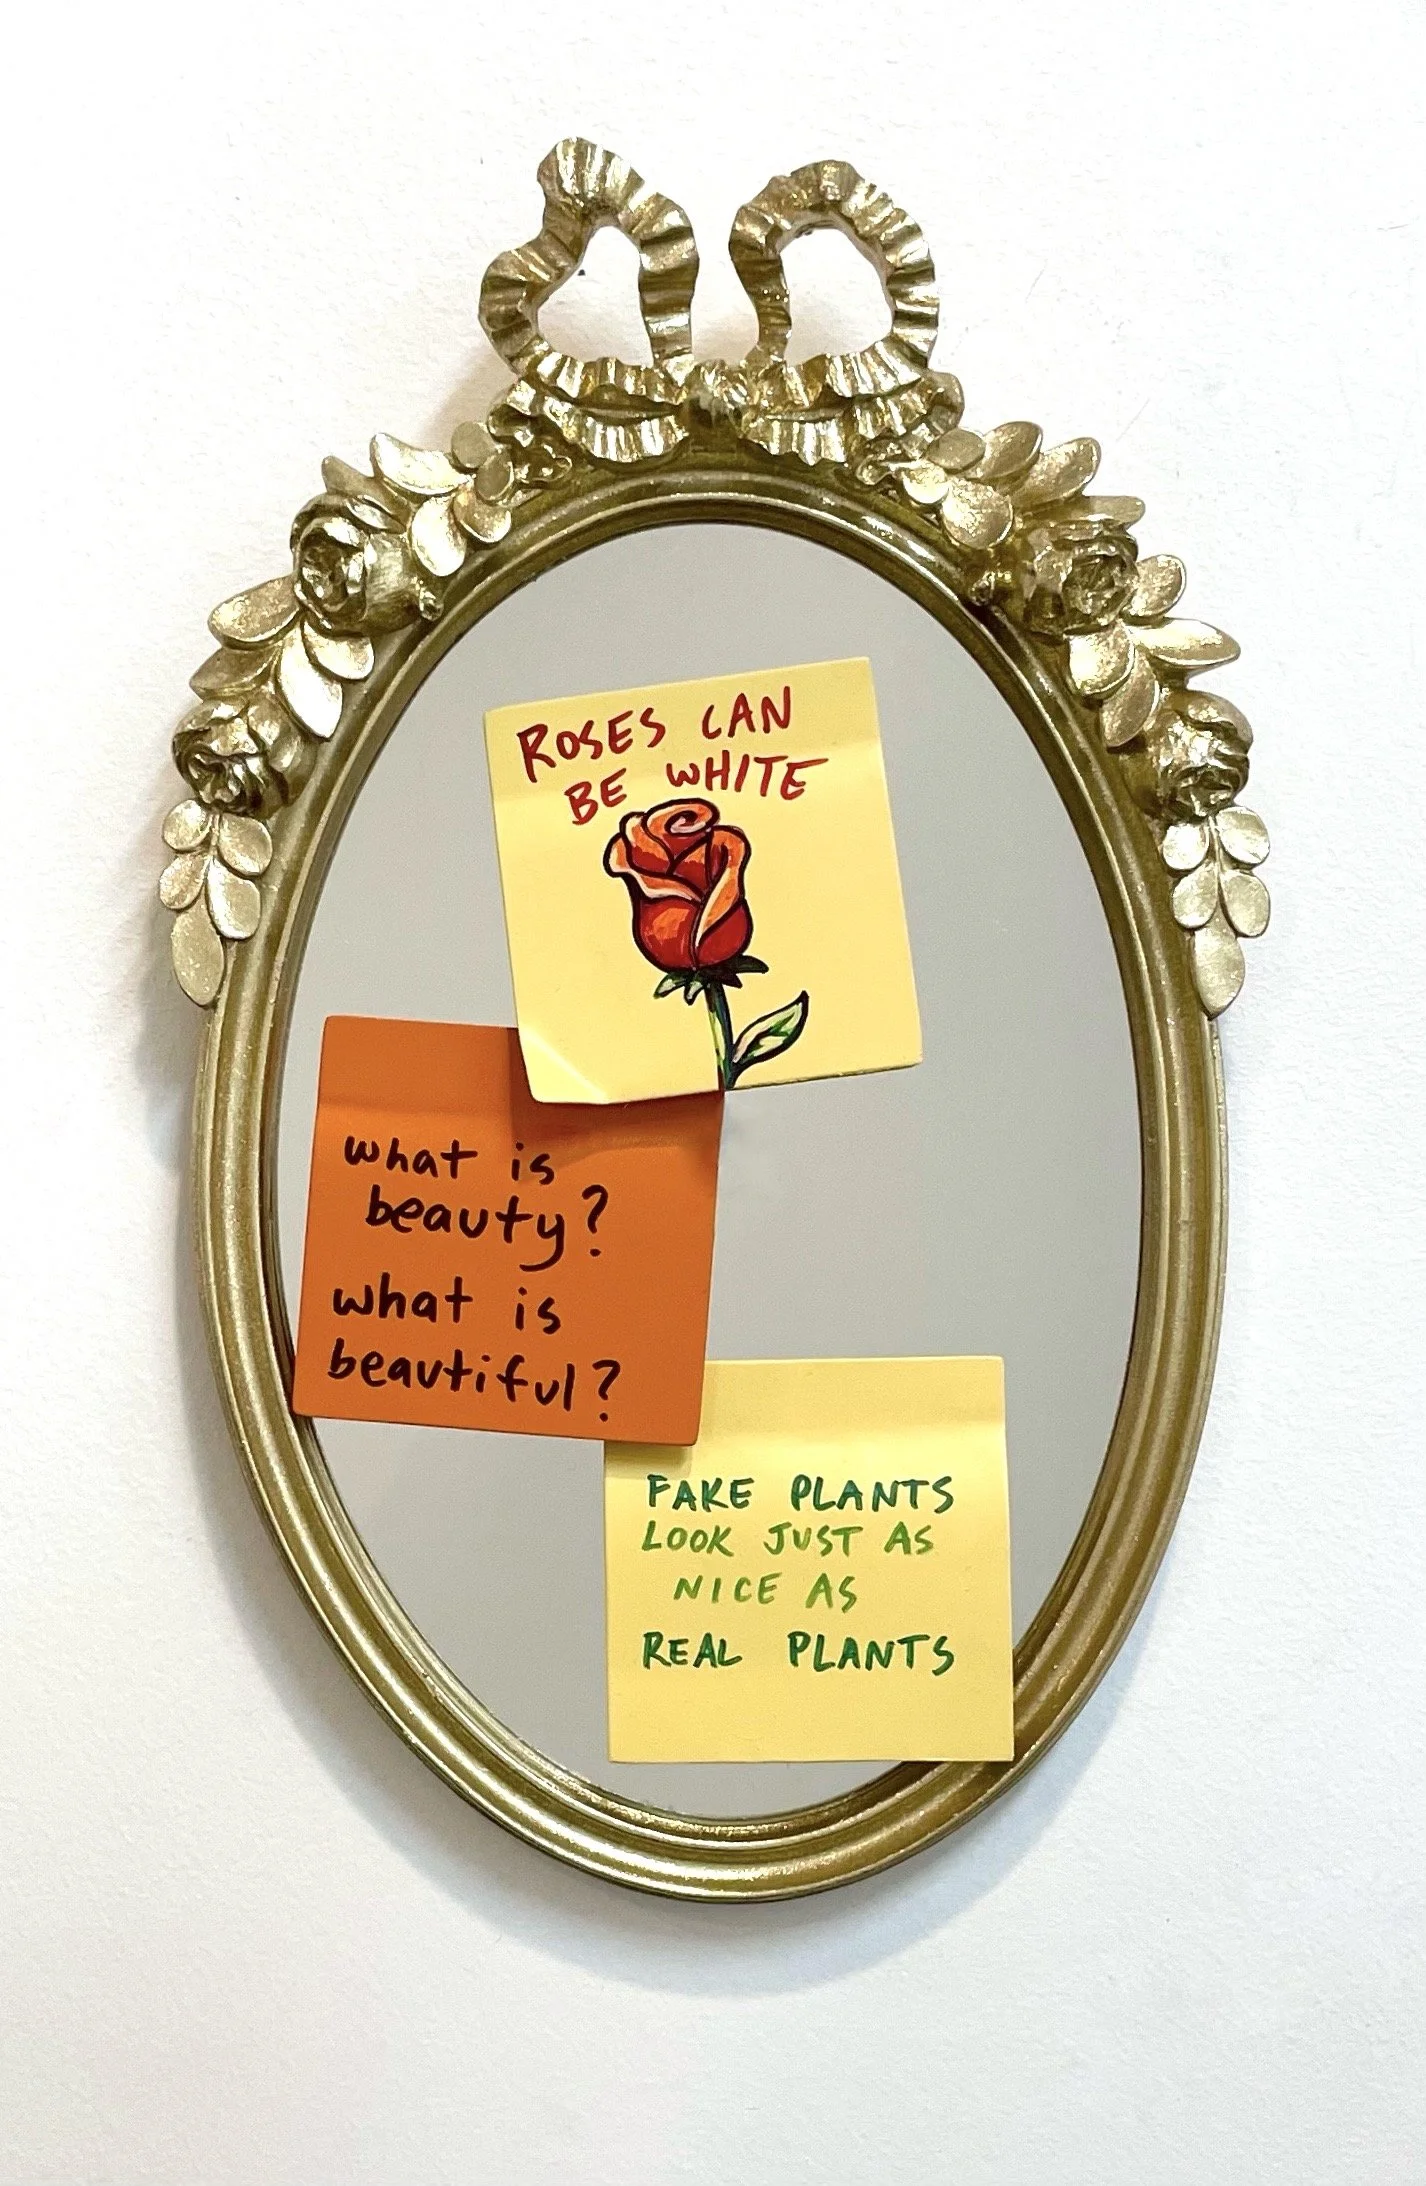 ROSES CAN
BE WHITE
what is
beauty?
what is
beautiful?
FAKE PLANTS
LOOK JUST AS
NICE AS
REAL PLANTS